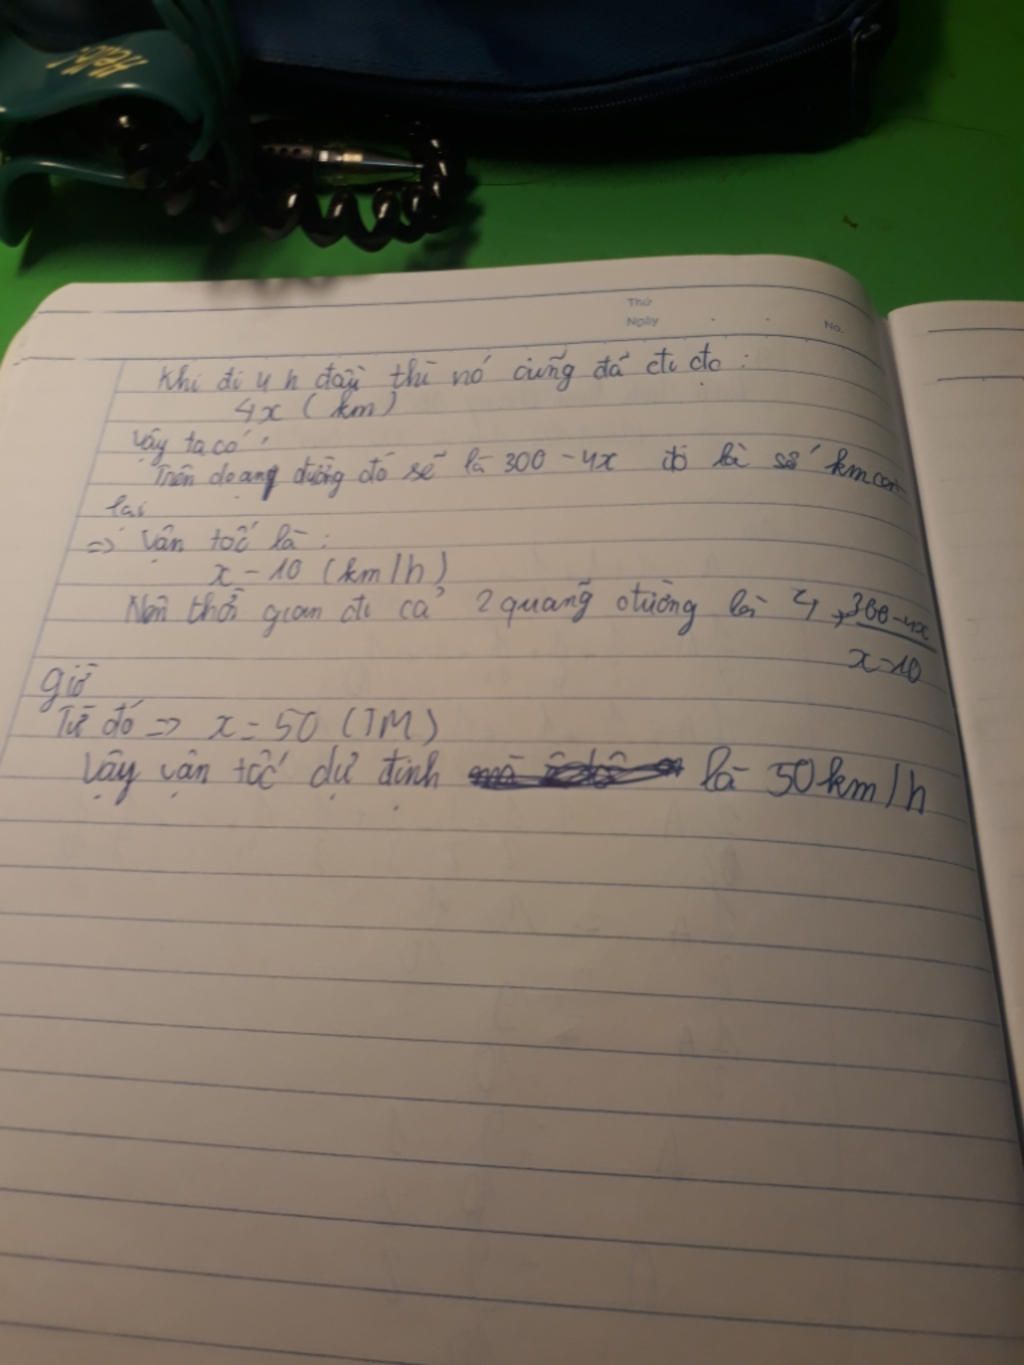 Thứ
Ngày . . No.
Khi đi 4 h đầu thì nó cũng đã đi đc :
4x ( km )
Vậy ta có :
Trên đoạng đường đó sẽ là 300 - 4x đó là số km còn
lại
=> Vận tốc là :
x - 10 (km/h)
Nên thời gian đi cả 2 quãng đường là 4 + 300-4x
x-10
giờ
Từ đó => x = 50 (TM)
Vậy vận tốc dự định là 50km/h